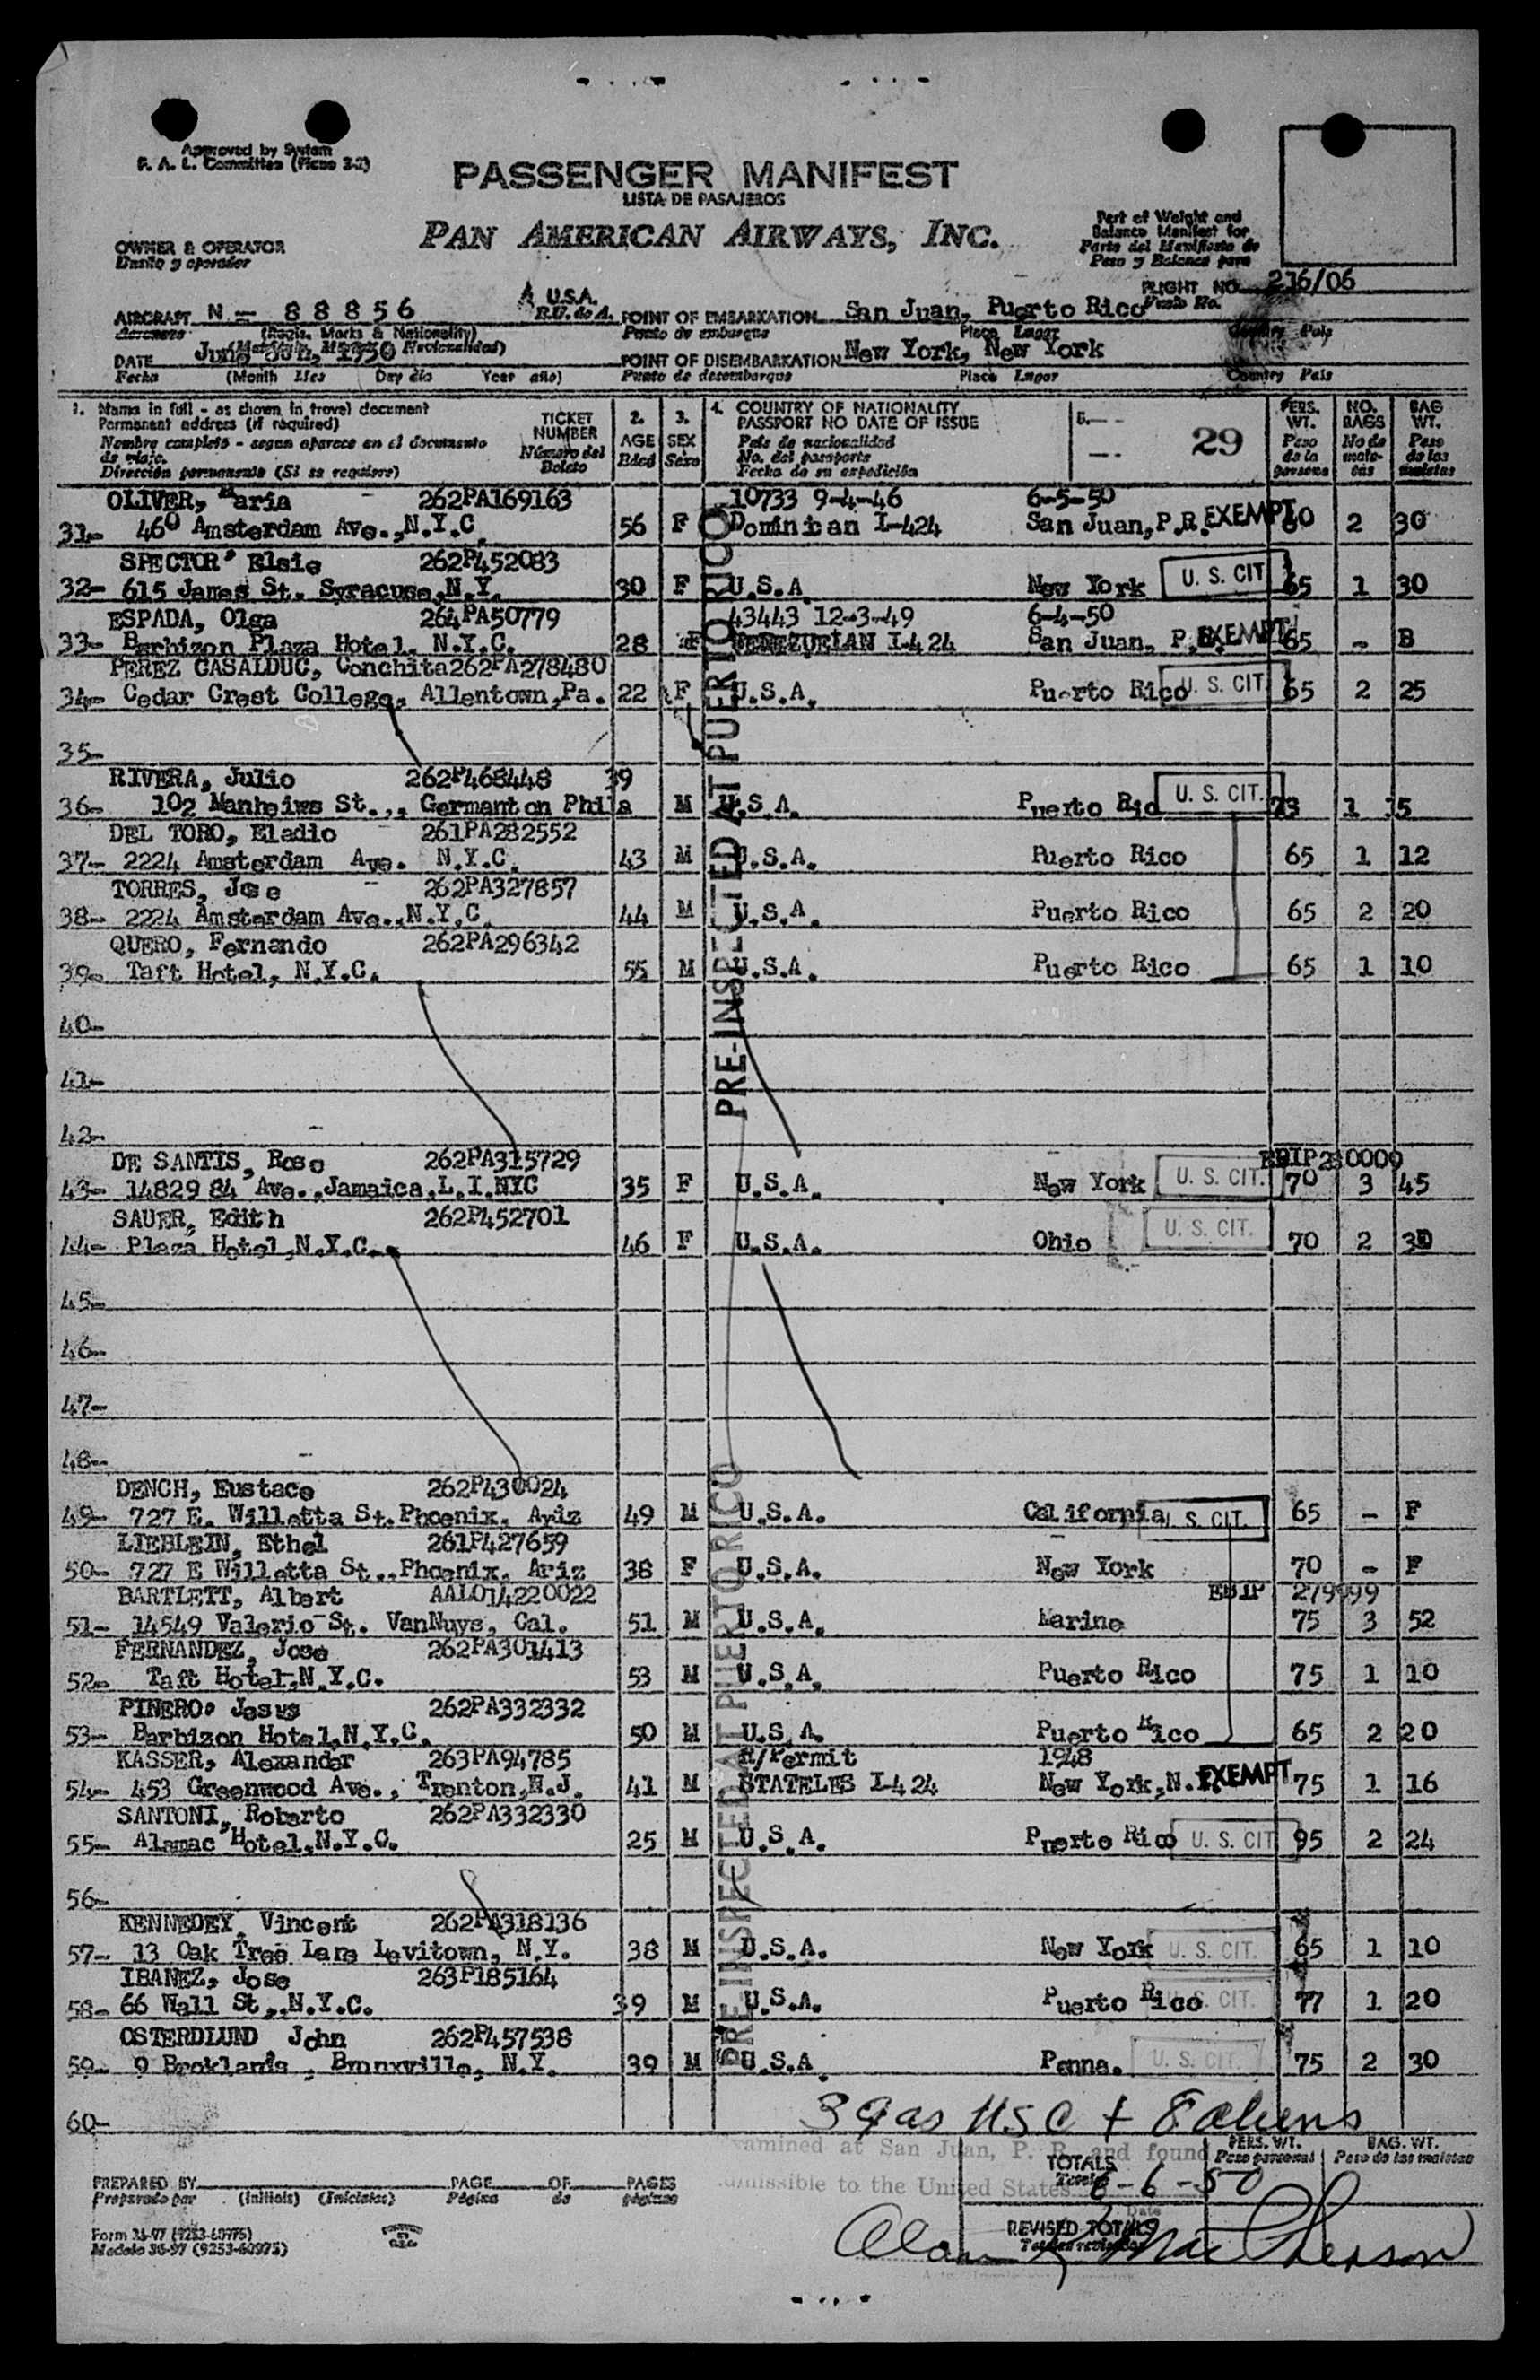 Approved by System
F. A. L. Committee (Ficao 3-2)
PASSENGER MANIFEST
LISTA DE PASAJEROS
PAN AMERICAN AIRWAYS, INC.
OWNER & OPERATOR
Dueño y operador
Part of Weight and
Balance Manifest for
Parte del Manifiesto de
Peso y Balance para
FLIGHT NO. 216/06
Vuelo No.
AIRCRAFT N - 88856 U.S.A. POINT OF EMBARKATION San Juan, Puerto Rico
Aeronave (Regis. Marks & Nationality) E.U. de A. Punto de embarque Place Lugar Country Pais
DATE June 1950 POINT OF DISEMBARKATION New York, New York
Fecha (Month Mes Day dia Year año) Punto de desembarque Place Lugar Country Pais
1. Name in full - as shown in travel document
Permanent address (if required)
Nombre completo - segun aparece en el documento
de viaje.
Dirección permanente (Si se requiere)
TICKET NUMBER
Número del Boleto
2. AGE Edad
3. SEX Sexo
4. COUNTRY OF NATIONALITY
PASSPORT NO DATE OF ISSUE
País de nacionalidad
No. del pasaporte
Fecha de su expedición
5. 29
PERS. WT. Peso de la persona
NO. BAGS No de male-tas
BAG WT. Peso de las maletas
OLIVER, Maria - 262PA169163 10733 9-4-46 6-5-50
31- 460 Amsterdam Ave.,N.Y.C. 56 F Dominican I-424 San Juan,P.R. EXEMPT 60 2 30
SPECTOR, Elsie 262P452083
32- 615 James St. Syracuse,N.Y. 30 F U.S.A. New York U. S. CIT. 65 1 30
ESPADA, Olga 264PA50779 43443 12-3-49 6-4-50
33- Barbizon Plaza Hotel, N.Y.C. 28 F VENEZUELAN I-424 San Juan, P.R. EXEMPT 65 - B
PEREZ CASALDUC, Conchita 262PA278480
34- Cedar Crest College, Allentown,Pa. 22 F U.S.A. Puerto Rico U. S. CIT. 65 2 25
35-
RIVERA, Julio 262P468448 39
36- 102 Manheims St.,, Germanton Phila M U.S.A. Puerto Ric U. S. CIT. 73 1 15
DEL TORO, Eladio 261PA282552
37- 2224 Amsterdam Ave. N.Y.C. 43 M U.S.A. Puerto Rico 65 1 12
TORRES, Jose - 262PA327857
38- 2224 Amsterdam Ave.,N.Y.C. 44 M U.S.A. Puerto Rico 65 2 20
QUERO, Fernando 262PA296342
39- Taft Hotel, N.Y.C. 55 M U.S.A. Puerto Rico 65 1 10
40-
41-
42- -
DE SANTIS, Rose 262PA315729
43- 14829 84 Ave.,Jamaica,L.I.NYC 35 F U.S.A. New York U. S. CIT. 70 3 45
SAUER, Edith 262P452701
44- Plaza Hotel,N.Y.C. 46 F U.S.A. Ohio U. S. CIT. 70 2 30
45-
46-
47-
48- -
DENCH, Eustace 262P430024
49- 727 E. Willetta St.Phoenix, Ariz 49 M U.S.A. California U. S. CIT. 65 - F
LIEBLEIN, Ethel 261P427659
50- 727 E Willetta St.,Phoenix, Ariz 38 F U.S.A. New York 70 - F
BARTLETT, Albert AAL014220022 EBIP 279999
51- 14549 Valerio St. VanNuys, Cal. 51 M U.S.A. Marine 75 3 52
FERNANDEZ, Jose 262PA301413
52- Taft Hotel,N.Y.C. 53 M U.S.A. Puerto Rico 75 1 10
PINERO, Jesus 262PA332332
53- Barbizon Hotel,N.Y.C. 50 M U.S.A. Puerto Rico 65 2 20
KASSER, Alexander 263PA94785 R/Permit 1948
54- 453 Greenwood Ave., Trenton,N.J. 41 M STATELES I-424 New York,N.Y. EXEMPT 75 1 16
SANTONI, Roberto 262PA332330
55- Alamac Hotel,N.Y.C. 25 M U.S.A. Puerto Rico U. S. CIT 95 2 24
56-
KENNEDEY, Vincent 262PA318136
57- 13 Oak Tree Lane Levitown, N.Y. 38 M U.S.A. New York U. S. CIT. 65 1 10
IBANEZ, Jose 263P185164
58- 66 Wall St.,N.Y.C. 39 M U.S.A. Puerto Rico U. S. CIT. 77 1 20
OSTERDLUND John 262P457538
59- 9 Broklands, Bronxville, N.Y. 39 M U.S.A. Penna. U. S. CIT 75 2 30
60-
PRE-INSPECTED AT PUERTO RICO
PRE-INSPECTED AT PUERTO RICO
39 as USC + 8 aliens
Examined at San Juan, P. R. and found
admissible to the United States
TOTALS
Totales
6-6-50
Date
PERS. WT. Peso personal
BAG. WT. Peso de las maletas
REVISED TOTALS
Totales revisados
Alan R MacPherson
PREPARED BY PAGE OF PAGES
Preparado por (Initials) (Iniciales) Página de páginas
Form 36-97 (9253-60975)
Modelo 36-97 (9253-60975)